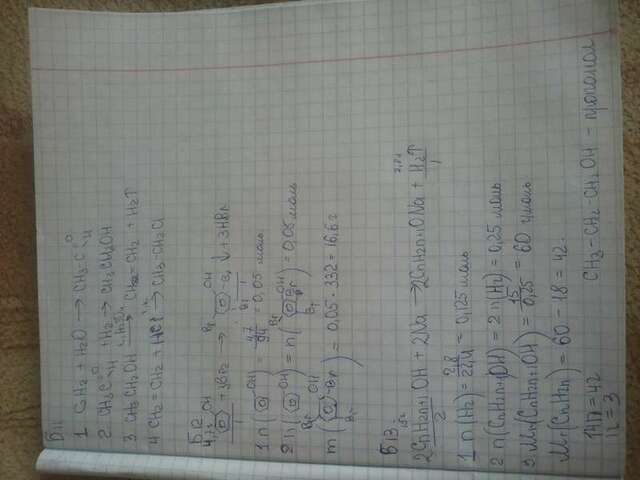 Б11
1. C2H2 + H2O → CH3-C=O H
2. CH3C=O H + H2 → CH3CH2OH
3. CH3CH2OH → CH2=CH2 + H2↑
4. CH2=CH2 + HCl → CH3-CH2Cl
Б12
4,7г OH + 3Br2 → Br OH Br ↓ + 3HBr
1 n(OH) = 4,7/94 = 0,05 моль
2 n(OH) = n(Br OH Br Br) = 0,05 моль
m(Br OH Br Br) = 0,05 · 332 = 16,6г
Б13.
2CnH2n+1OH + 2Na → 2CnH2n+1ONa + H2↑
1 n(H2) = 2,8/22,4 = 0,125 моль
2 n(CnH2n+1OH) = 2n(H2) = 0,25 моль
3. Mr(CnH2n+1OH) = 15/0,25 = 60 г/моль
Mr(CnH2n) = 60 - 18 = 42.
14n = 42
n = 3
CH3-CH2-CH2OH - пропанол